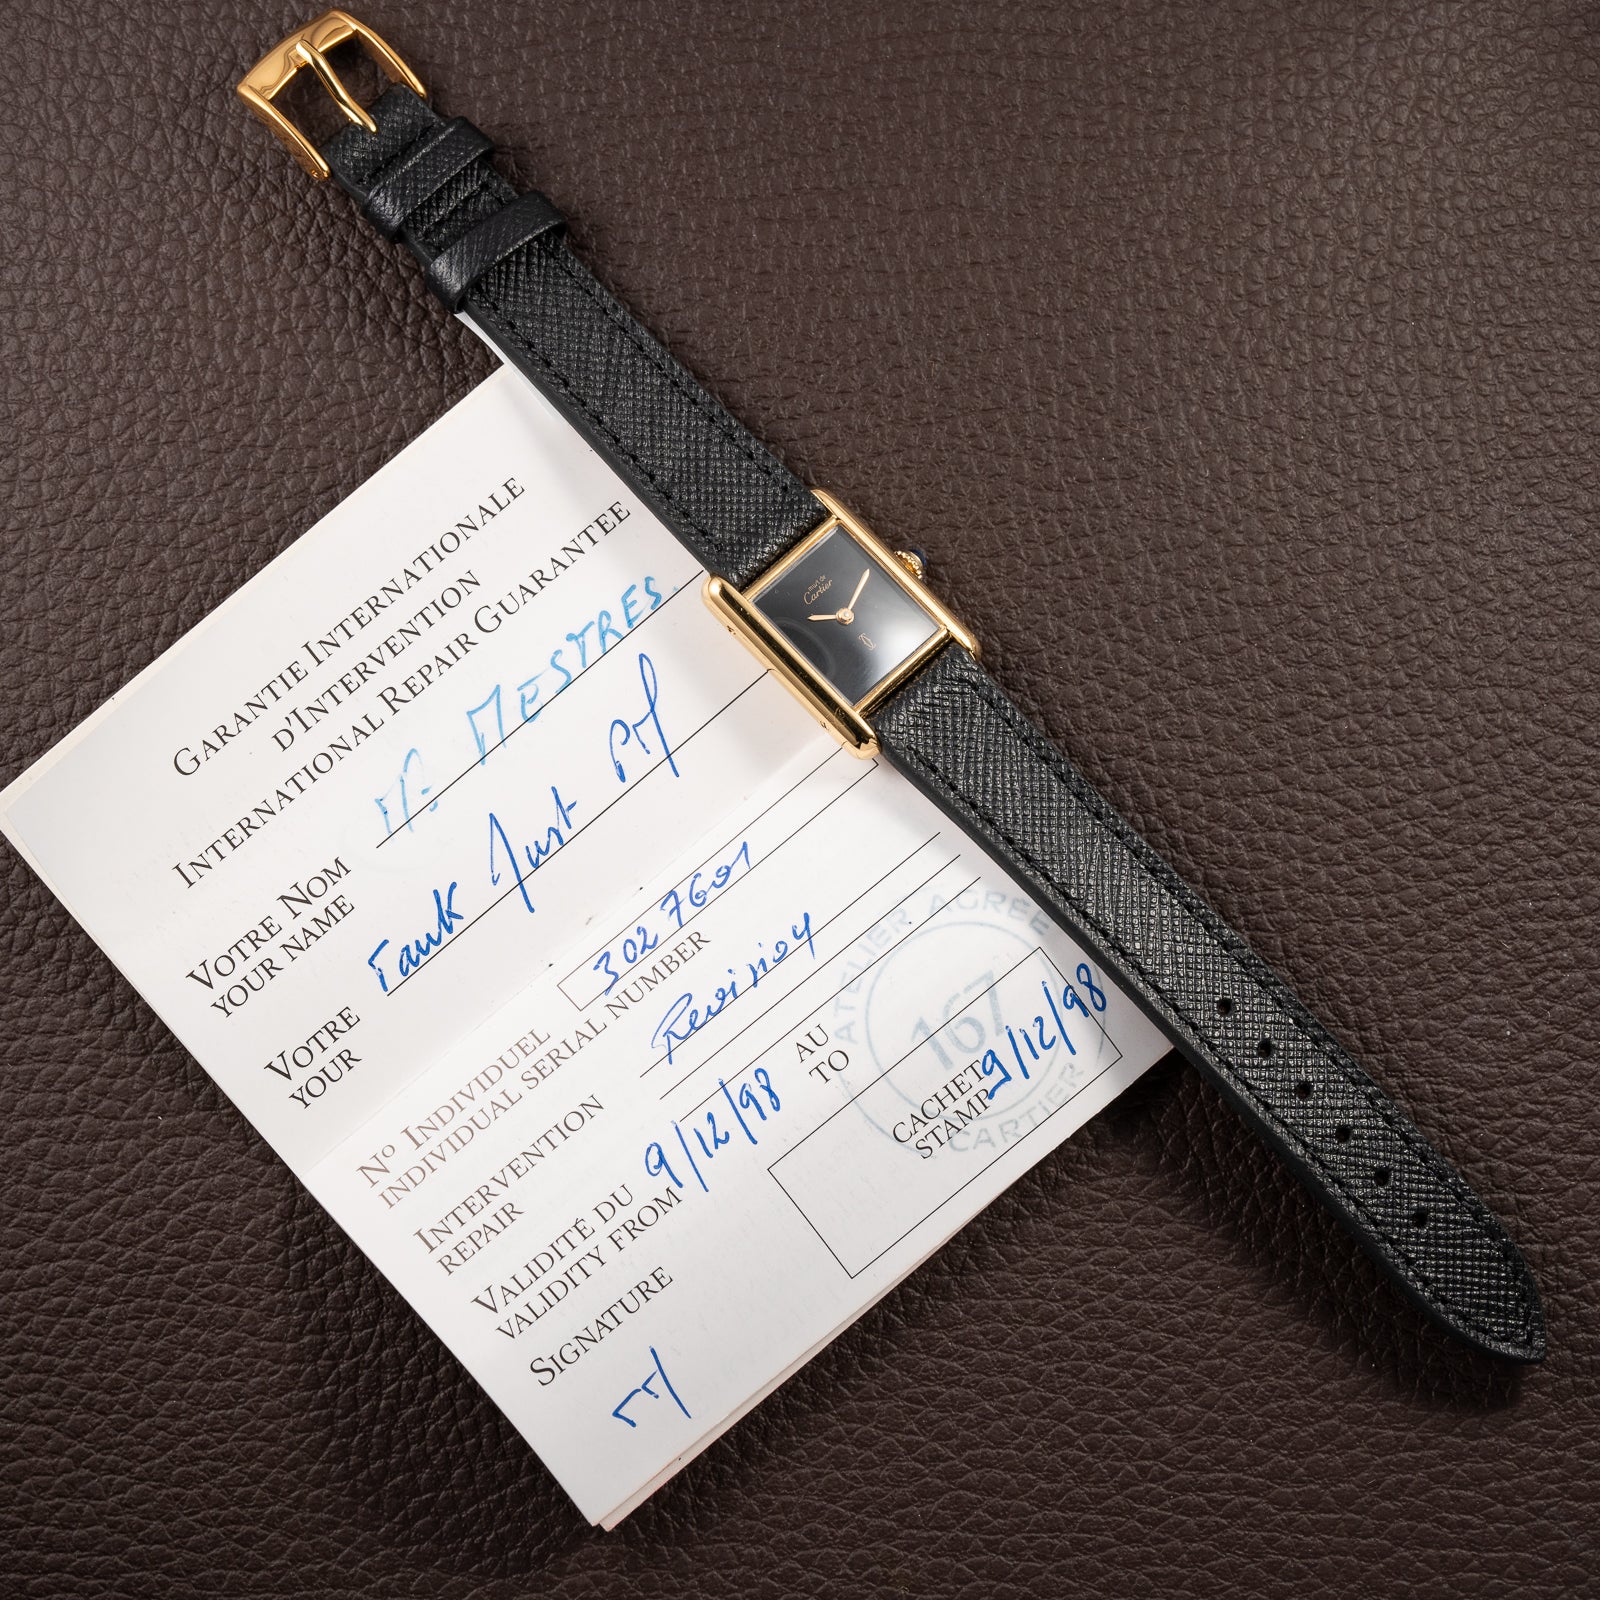 GARANTIE INTERNATIONALE
D'INTERVENTION
INTERNATIONAL REPAIR GUARANTEE
VOTRE NOM
YOUR NAME
MESTRES
VOTRE
YOUR
Tank Just PM
Nº INDIVIDUEL
INDIVIDUAL SERIAL NUMBER
302 7601
INTERVENTION
REPAIR
Revision
VALIDITÉ DU
VALIDITY FROM
9/12/98
AU
TO
9/12/98
SIGNATURE
CACHET
STAMP
ATELIER AGREE
167
CARTIER
must de
Cartier